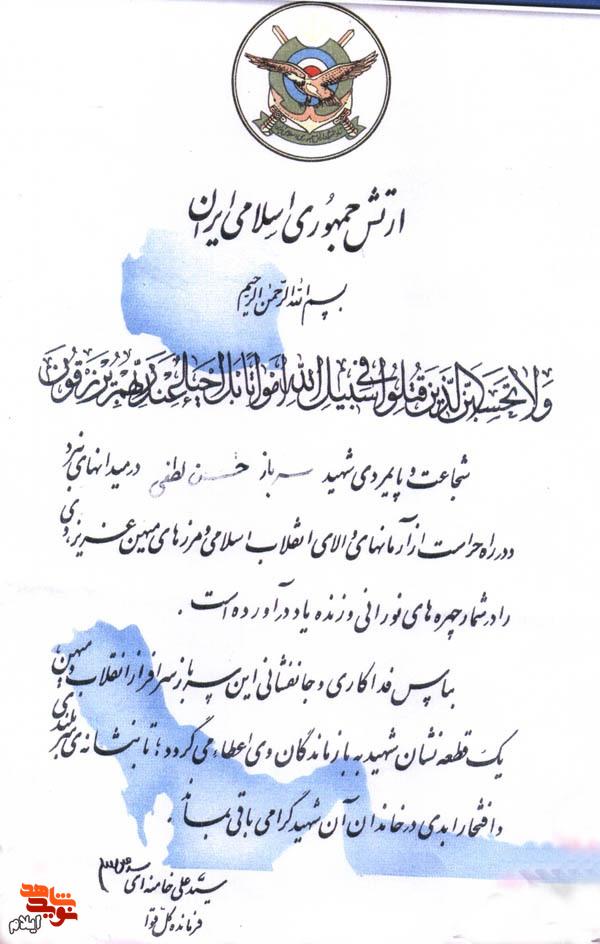 ارتش جمهوری اسلامی ایران
بسم الله الرحمن الرحیم
ولا تحسبن الذین قتلوا فی سبیل الله امواتا بل احیاء عند ربهم یرزقون
شجاعت و پایمردی شهید سرباز حسن لطفی در میدانهای نبرد
و در راه حراست از آرمانهای والای انقلاب اسلامی و مرزهای میهن عزیز، وی
را در شمار چهره های نورانی و زنده یاد در آورده است .
بپاس فداکاری و جانفشانی این سرباز سرافراز انقلاب و میهن،
یک قطعه نشان شهید به بازماندگان وی اعطاء می گردد ؛ تا بنشانه ی سربلندی
و افتخار ابدی در خاندان آن شهید گرامی باقی بماند .
سید علی خامنه ای
فرمانده کل قوا
نوید شاهد
ایلام